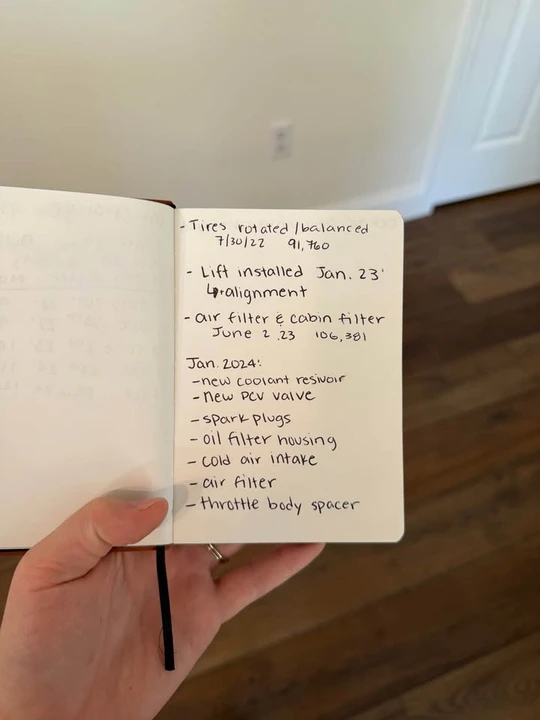 - Tires rotated/balanced
7/30/22 91,760
- Lift installed Jan. 23'
↳alignment
- air filter & cabin filter
June 2.23 106,381
Jan. 2024:
- new coolant resivoir
- new PCV valve
- spark plugs
- oil filter housing
- cold air intake
- air filter
- throttle body spacer